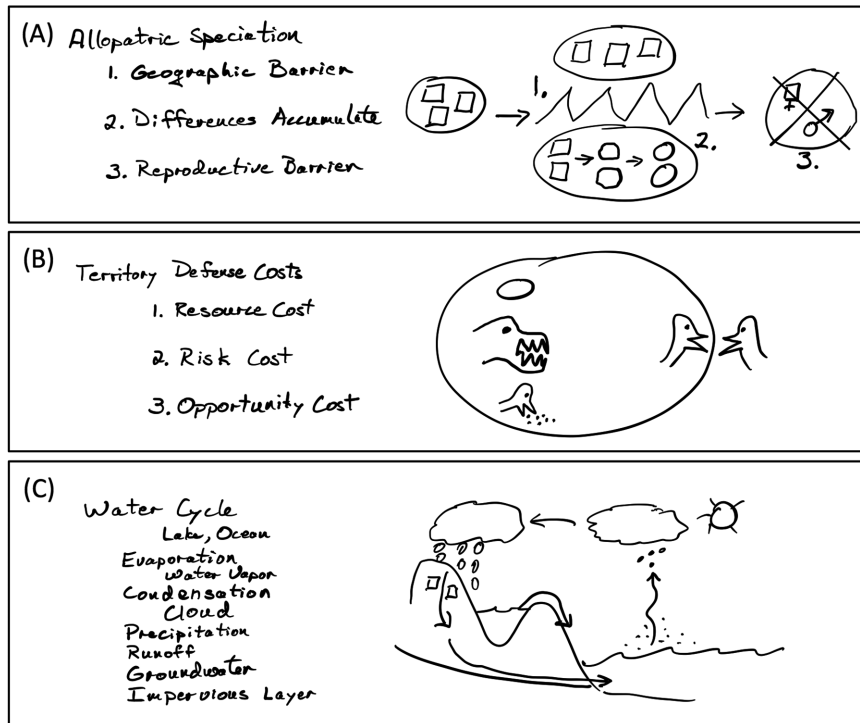 (A) Allopatric Speciation
1. Geographic Barrier
2. Differences Accumulate
3. Reproductive Barrier
1.
2.
3.
(B) Territory Defense Costs
1. Resource Cost
2. Risk Cost
3. Opportunity Cost
(C) Water Cycle
Lake, Ocean
Evaporation
Water Vapor
Condensation
Cloud
Precipitation
Runoff
Groundwater
Impervious Layer